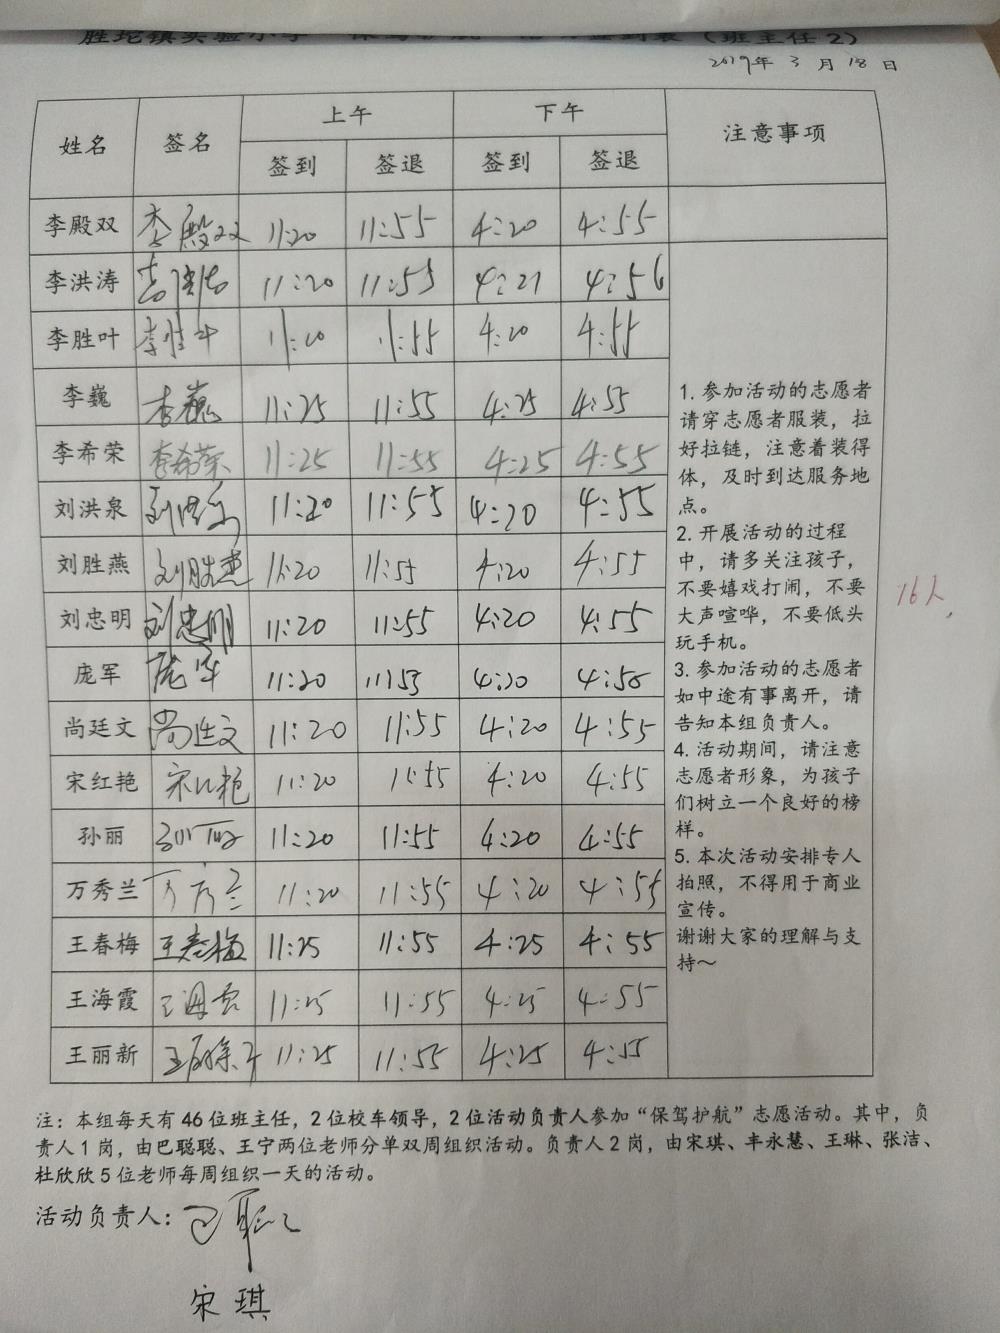 胜坨镇实验小学“保驾护航”活动签到表（班主任2）
2019年 3 月 18 日
姓名 签名 上午 下午 注意事项
签到 签退 签到 签退
李殿双 李殿双 11:20 11:55 4:20 4:55
李洪涛 李洪涛 11:20 11:55 4:21 4:56
李胜叶 李胜叶 11:20 11:55 4:20 4:55
李巍 李巍 11:25 11:55 4:25 4:55
李希荣 李希荣 11:25 11:55 4:25 4:55
刘洪泉 刘洪泉 11:20 11:55 4:20 4:55
刘胜燕 刘胜燕 11:20 11:55 4:20 4:55
刘忠明 刘忠明 11:20 11:55 4:20 4:55
庞军 庞军 11:20 11:53 4:20 4:56
尚廷文 尚廷文 11:20 11:55 4:20 4:55
宋红艳 宋红艳 11:20 11:55 4:20 4:55
孙丽 孙丽 11:20 11:55 4:20 4:55
万秀兰 万秀兰 11:20 11:55 4:20 4:55
王春梅 王春梅 11:25 11:55 4:25 4:55
王海霞 王海霞 11:25 11:55 4:25 4:55
王丽新 11:25 11:55 4:25 4:55
1. 参加活动的志愿者
请穿志愿者服装，拉
好拉链，注意着装得
体，及时到达服务地
点。
2. 开展活动的过程
中，请多关注孩子，
不要嬉戏打闹，不要
大声喧哗，不要低头
玩手机。
3. 参加活动的志愿者
如中途有事离开，请
告知本组负责人。
4. 活动期间，请注意
志愿者形象，为孩子
们树立一个良好的榜
样。
5. 本次活动安排专人
拍照，不得用于商业
宣传。
谢谢大家的理解与支
持～
16人
注：本组每天有 46 位班主任，2 位校车领导，2 位活动负责人参加“保驾护航”志愿活动。其中，负
责人 1 岗，由巴聪聪、王宁两位老师分单双周组织活动。负责人 2 岗，由宋琪、丰永慧、王琳、张洁、
杜欣欣 5 位老师每周组织一天的活动。
活动负责人：
宋琪